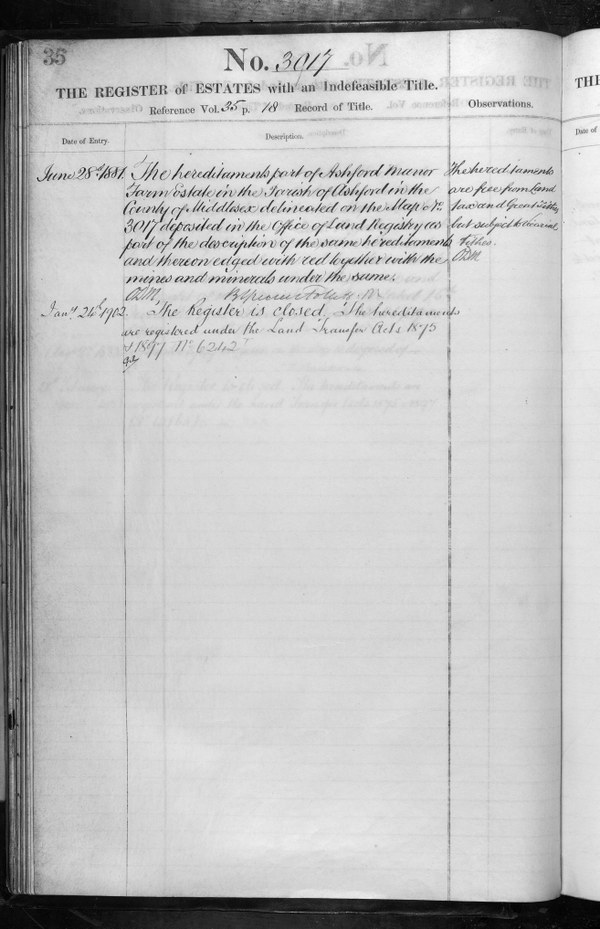 35
No. 3017
THE REGISTER of ESTATES with an Indefeasible Title.
Reference Vol. 35 p. 18 Record of Title.
Observations.
Date of Entry.
Description.
June 28th 1881.
The hereditaments part of Ashford Manor
Farm Estate in the Parish of Ashford in the
County of Middlesex delineated on the Map No.
3017 deposited in the Office of Land Registry as
part of the description of the same hereditaments
and thereon edged with red together with the
mines and minerals under the same.
The hereditaments
are free from Land
tax and Great Tithes
but subject to vicarial
tithes.
Jany. 24th 1902.
The Register is closed. The hereditaments
are registered under the Land Transfer Acts 1875
& 1897 No 6242
THE
Date of